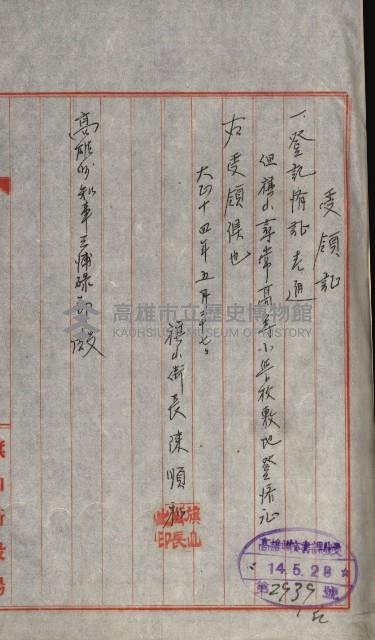 受領証
一、登記済証 壱通
但旗山尋常高等小学校敷地登済証
右受領候也
大正十四年五月二十七日
旗山街長 陳順和
旗山街長印
高雄州知事三浦碌郎殿
高雄市立歷史博物館
KAOHSIUNG MUSEUM OF HISTORY
14.5.28
第2939號